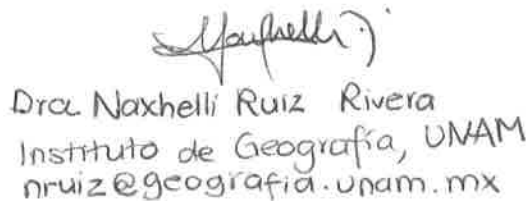 Dra. Naxhelli Ruiz Rivera
Instituto de Geografía, UNAM
nruiz@geografia.unam.mx